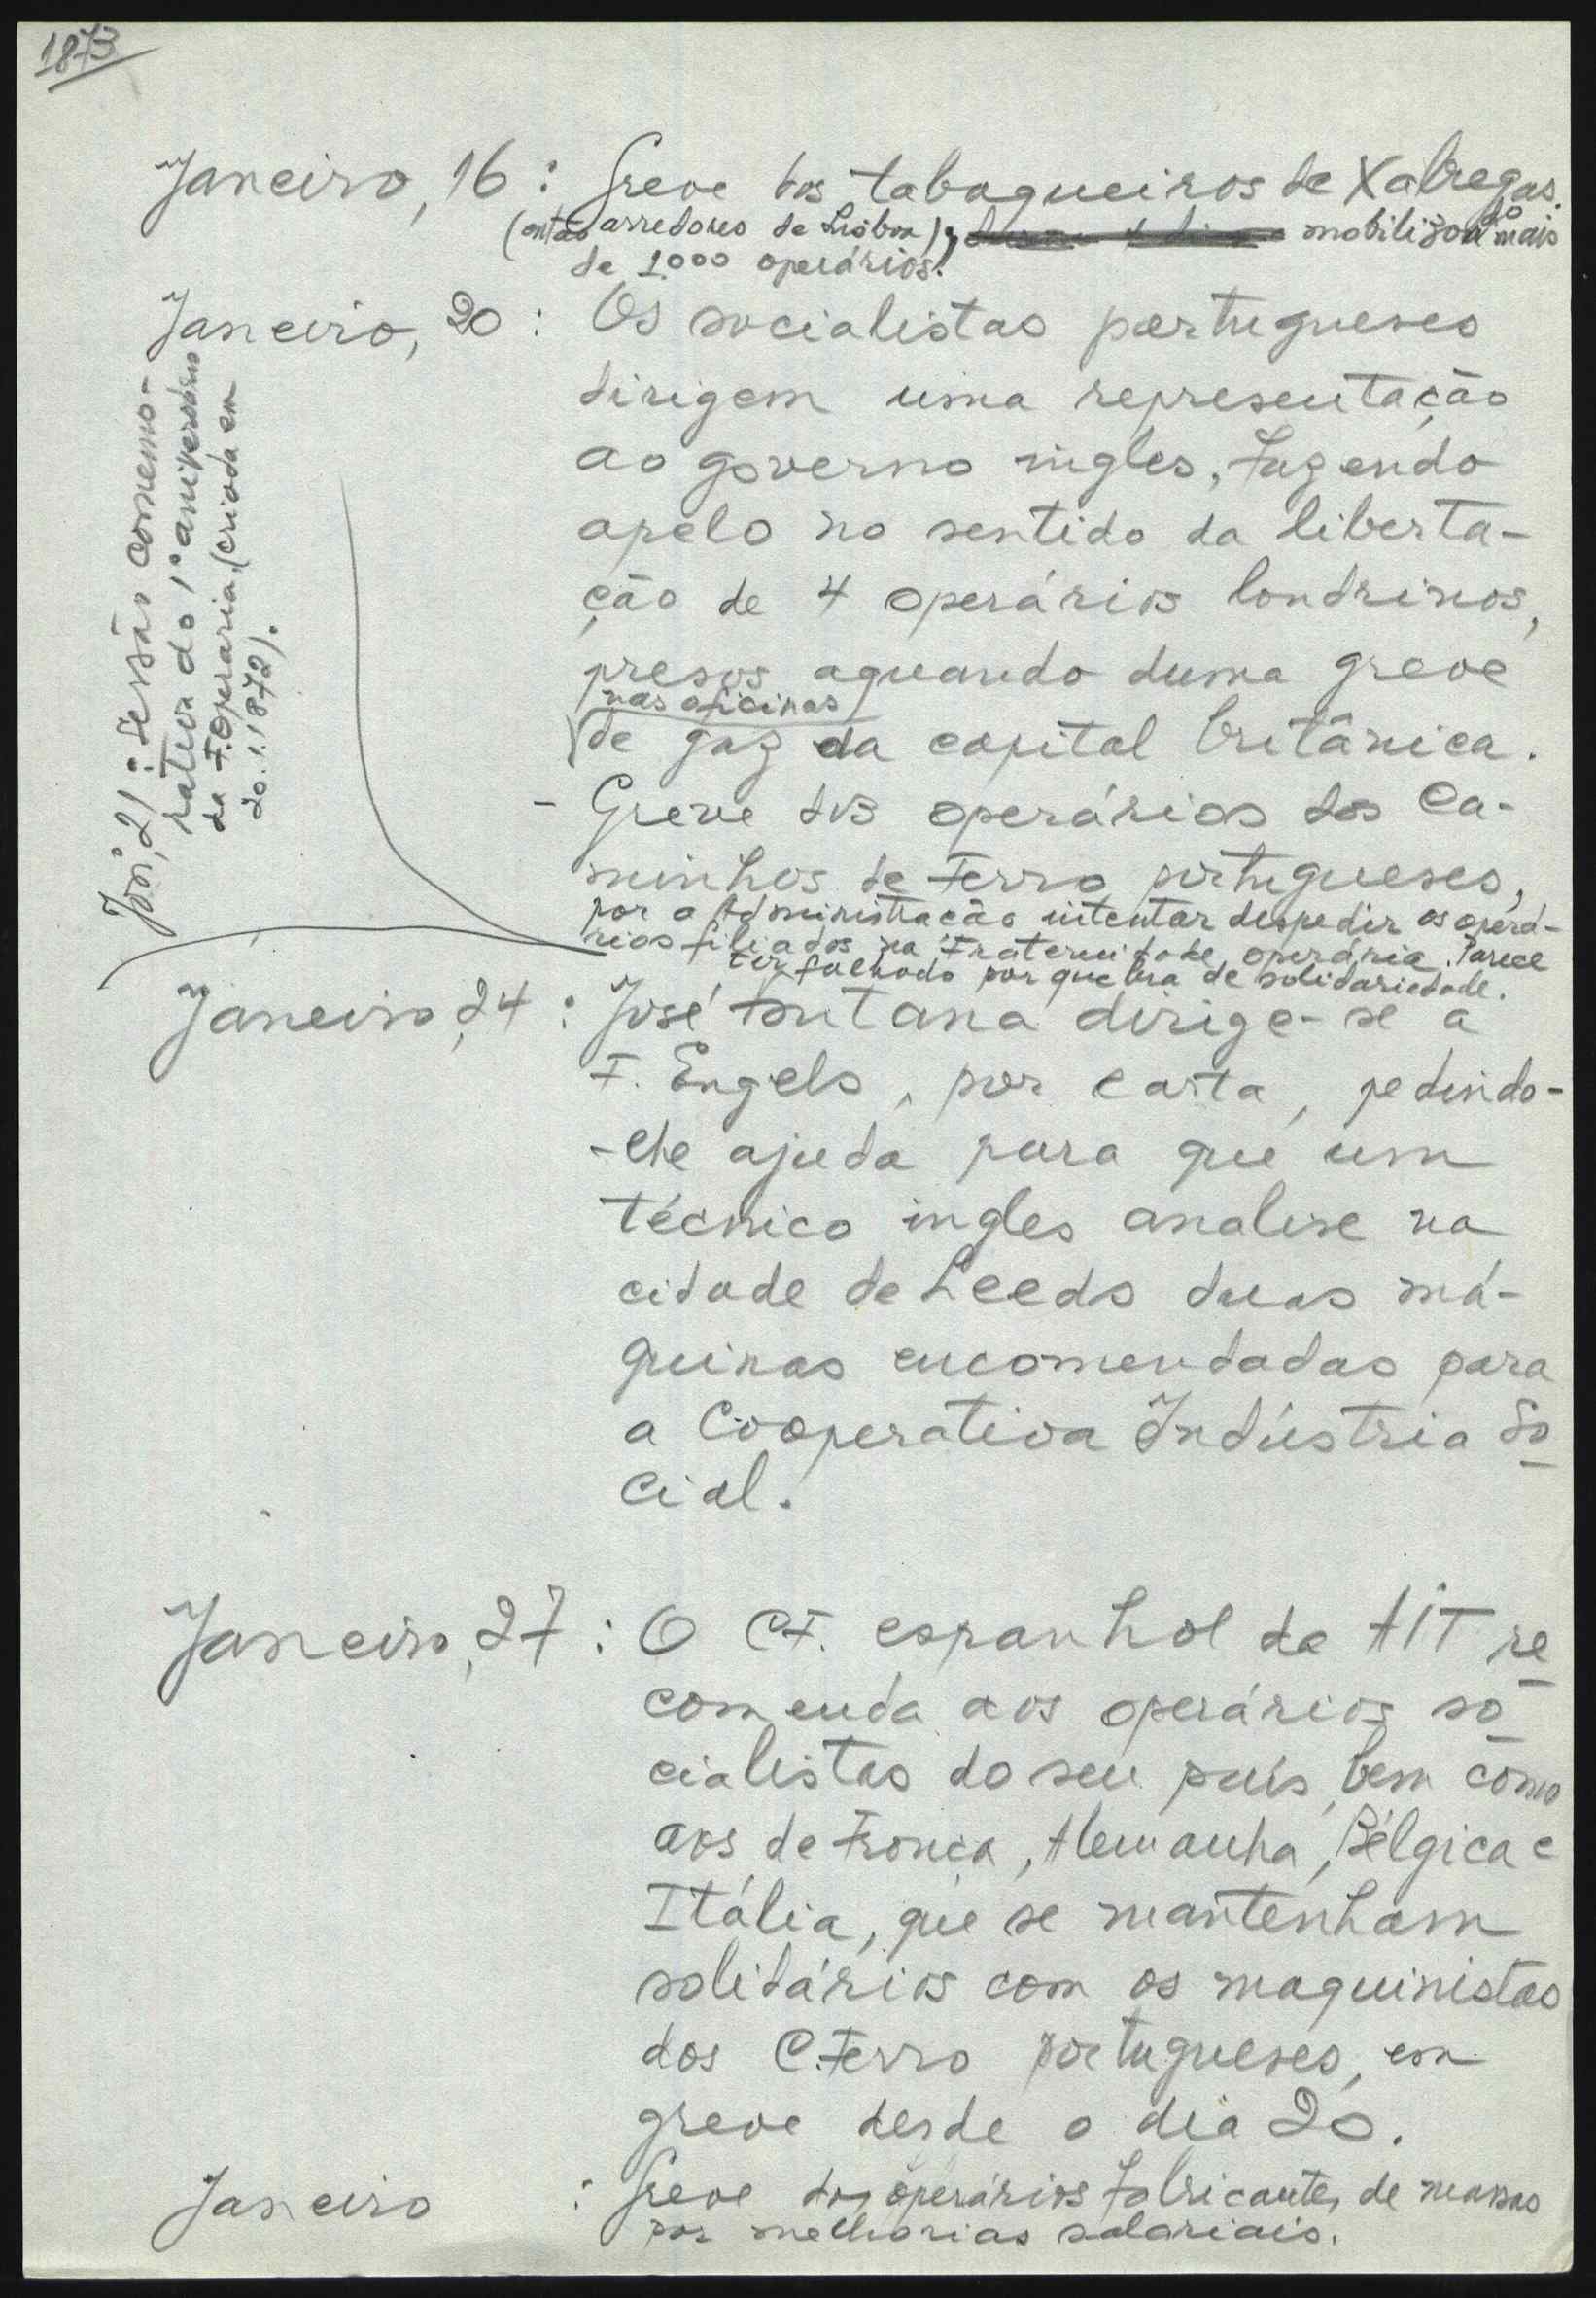 1873
Janeiro, 16 : Greve dos tabaqueiros de Xabregas.
(então arredores de Lisboa), mobilizou mais
de 1.000 operários.
Janeiro, 20 : Os socialistas portugueses
dirigem uma representação
ao governo ingles, fazendo
apelo no sentido da liberta-
ção de 4 operários londrinos,
presos aquando duma greve
nas oficinas
de gaz da capital britânica.
- Greve dos operários dos Ca-
minhos de Ferro portugueses,
por a Administração intentar despedir os operá-
rios filiados na Fraternidade operária. Parece
ter falhado por quebra de solidariedade.
Jan, 21 : Sessão comemo-
rativa do 1º aniversário
da F. Operaria, (criada em
20.1.1872).
Janeiro, 24 : José Fontana dirige-se a
F. Engels, por carta, pedindo-
-lhe ajuda para que um
técnico ingles analise na
cidade de Leeds duas má-
quinas encomendadas para
a Cooperativa Indústria So
cial.
Janeiro, 27 : O C.F. espanhol da AIT re
comenda aos operários so
cialistas do seu país, bem como
aos de França, Alemanha, Bélgica e
Itália, que se mantenham
solidários com os maquinistas
dos C. Ferro portugueses, em
greve desde o dia 20.
Janeiro : Greve dos operários fabricantes de massas
por melhorias salariais.